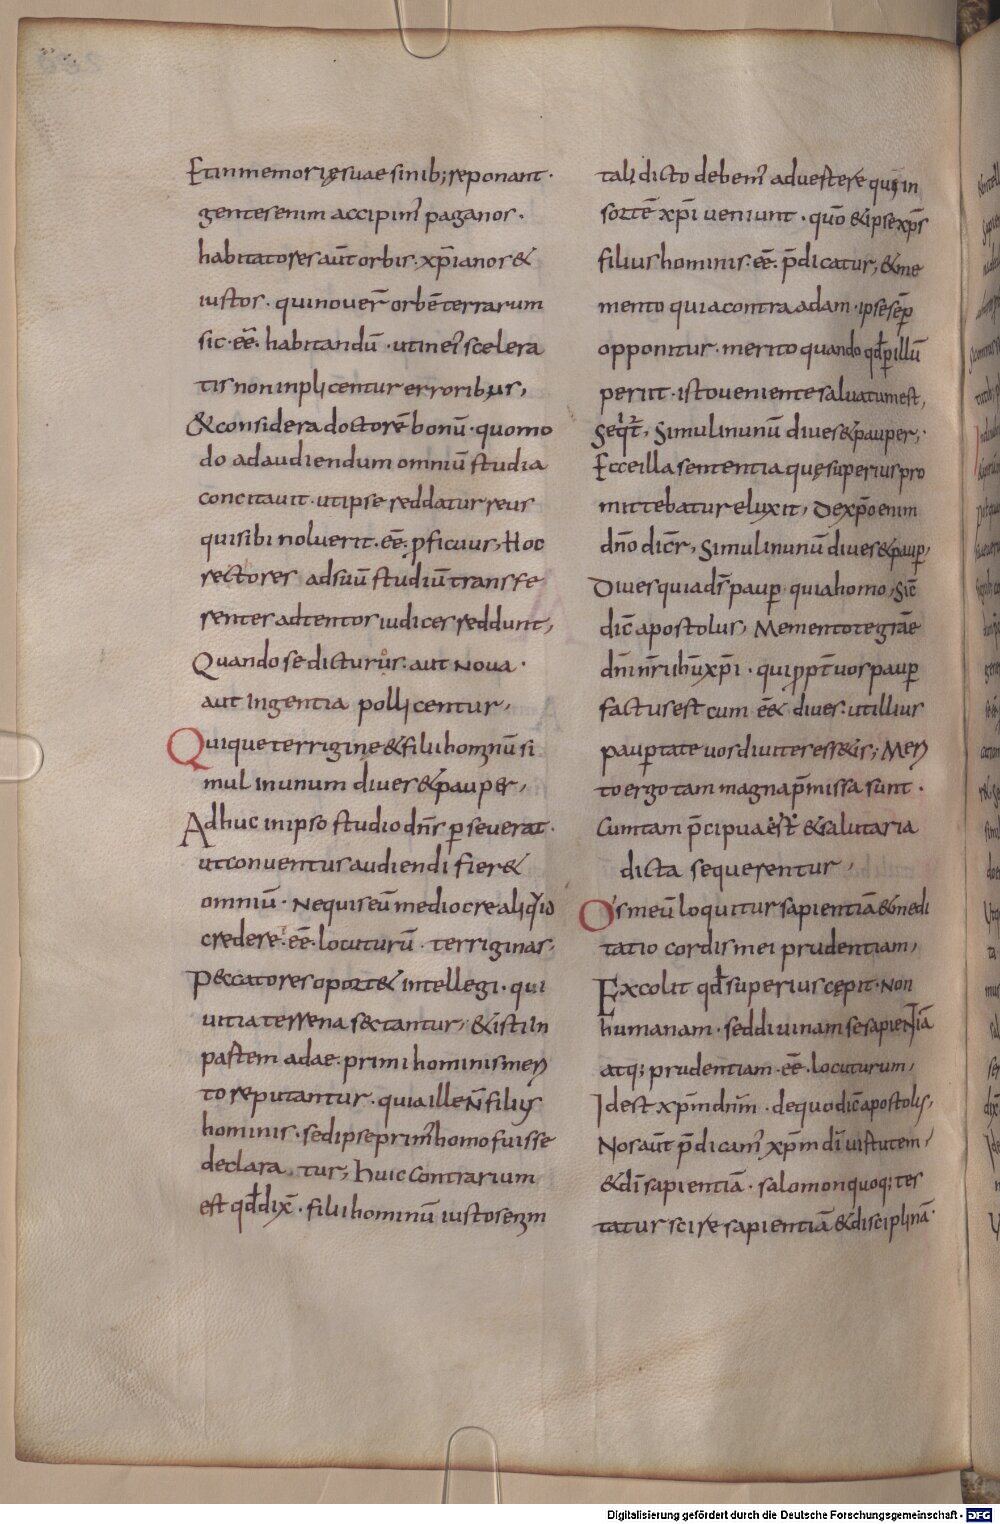 Et in memorię suae sinib; reponant·
gentes enim accipim̄ paganos·
habitatores aūt orbis· xp̄ianos &
iustos· qui noueř orbē terrarum
sic· eē· habitandū· ut in ei' scelera
tis non inplicentur erroribus,
& considera doctorē bonū· quomo
do ad audiendum omniū studia
concitauit· ut ipse reddatur reus
qui sibi noluerit· eē· ꝓficuus, Hoc
rectores ad suū studiū transfe
rentes adtentos iudices reddunt,
Quando se dicturus· aut Noua·
aut Ingentia pollicentur,
Quique terriginę & filii hominū si
mul In unum diues & pauper,
Adhuc in ipso studio dn̄s perseuerat·
ut conuentus audiendi fier&
omniū· Nequis eū mediocre aliquid
credere· eē· locuturū· terriginas·
Peccatores oport& intellegi· qui
uitia terrena sectantur, & isti In
partem adae· primi hominis men
to reputantur· quia ille N̄ filius
hominis· sed ipse prim' homo fuisse
declara tur, huic Contrarium
est qđ dix̄· filii hominū iustos enim
tali dicto debem' aduertere qui in
sortē xp̄i ueniunt· quō & ipse xp̄s
filius hominis· eē· p̄dicatur, & me
mento quia contra adam· ipse sēp
opponitur· merito quando qđ ꝑ illū
periit· isto ueniente saluatum est,
Seqt̄r, Simul in unū diues & pauper,·
Ecce illa sententia quę superius pro
mittebatur eluxit, De xp̄o enim
dn̄o dicr̄, Simul in unū diues & paup̱,
Diues quia ds̄ paup̱ quia homo, Sic̄
dic̄ apostolus, Mementote gr̄ae
dn̄i nr̄i ihū xp̄i· qui ꝓpt̄ uos paup̱
factus est cum eē& diues· ut illius
paup̱tate uos diuites ess&is; Men
to ergo tam magna p̄missa sunt·
Cum tam p̄cipua est & salutaria
dicta sequerentur,
Os meū loquitur sapientiā & medi
tatio cordis mei prudentiam,
Excolit qđ superius cępit· Non
humanam· sed diuinam se sapientiā
atq; prudentiam· eē· locuturum,
Id est xp̄m dn̄m· de quo dic̄ apostolus,
Nos aūt p̄dicam' xp̄m dī uirtutem,
& dī sapientiā· salomon quoq; tes
tatur scire sapientiā & disciplinā·
Digitalisierung gefördert durch die Deutsche Forschungsgemeinschaft - DFG